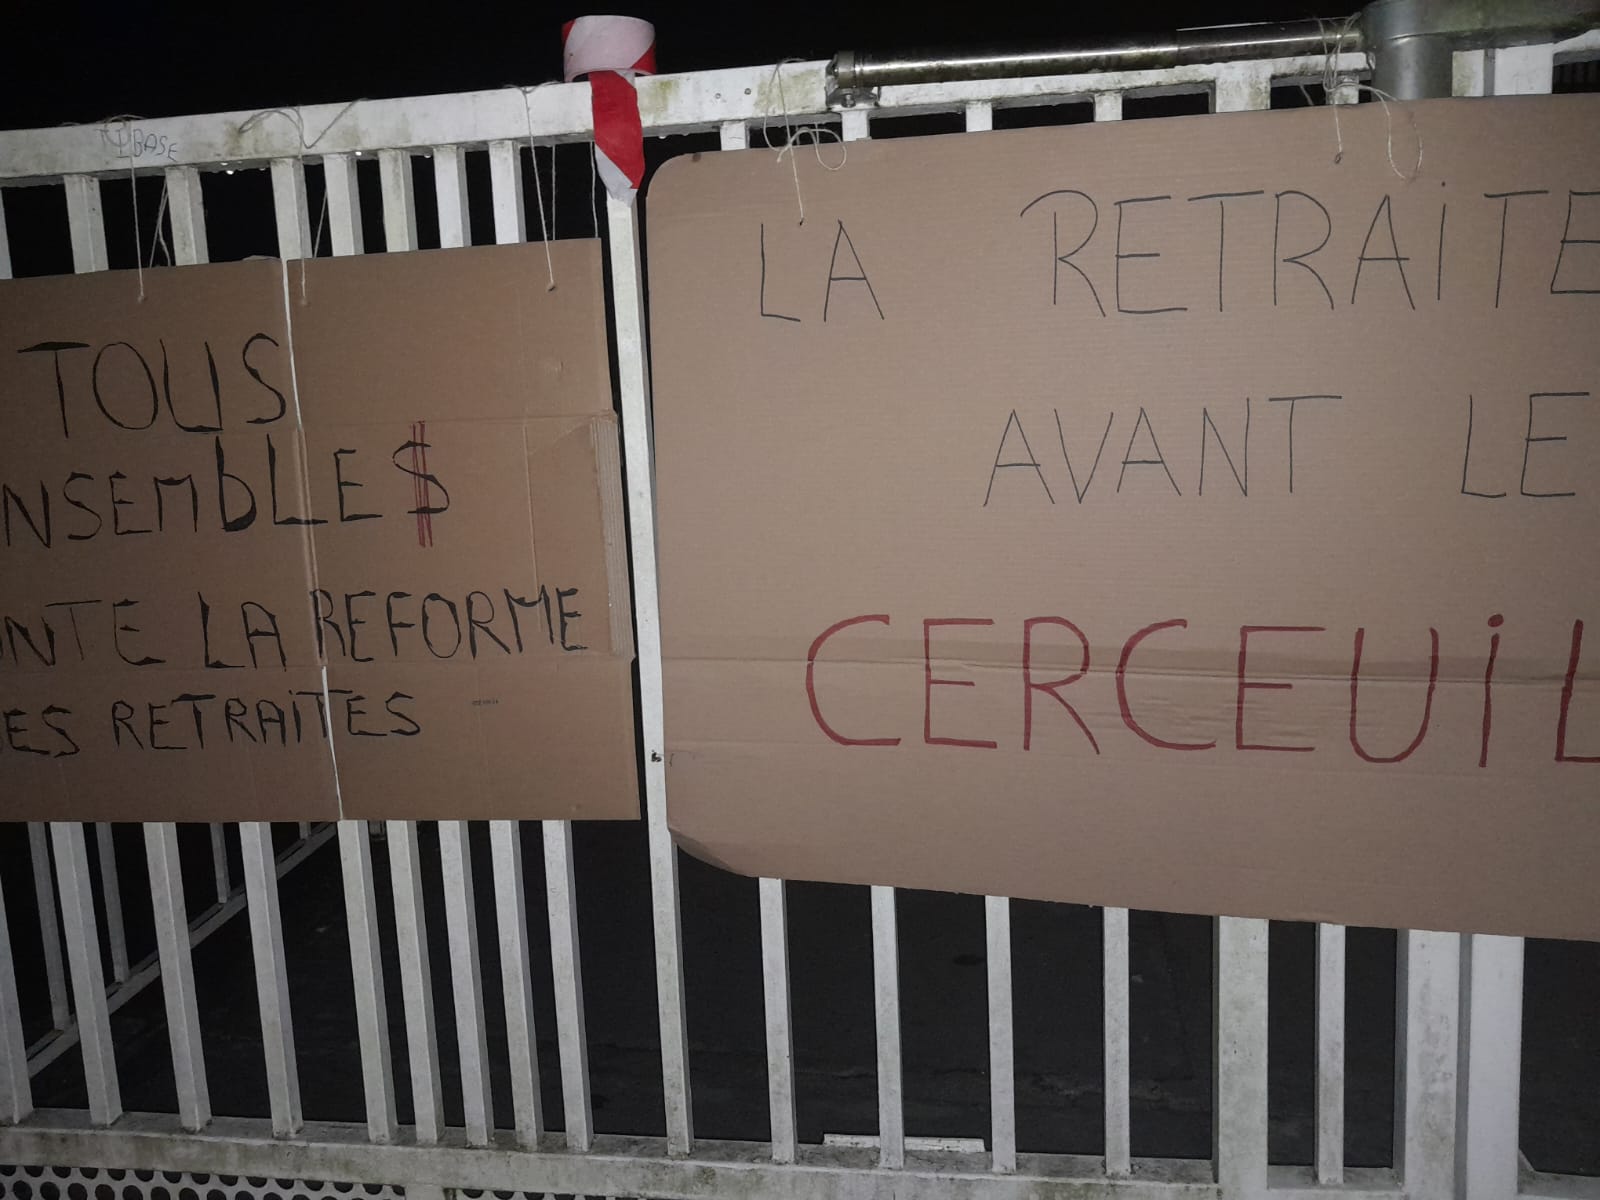 TOUS
NSEMbLES
NTE LA REFORME
ES RETRAiTES
LA RETRAiTE
AVANT LE
CERCEUiL